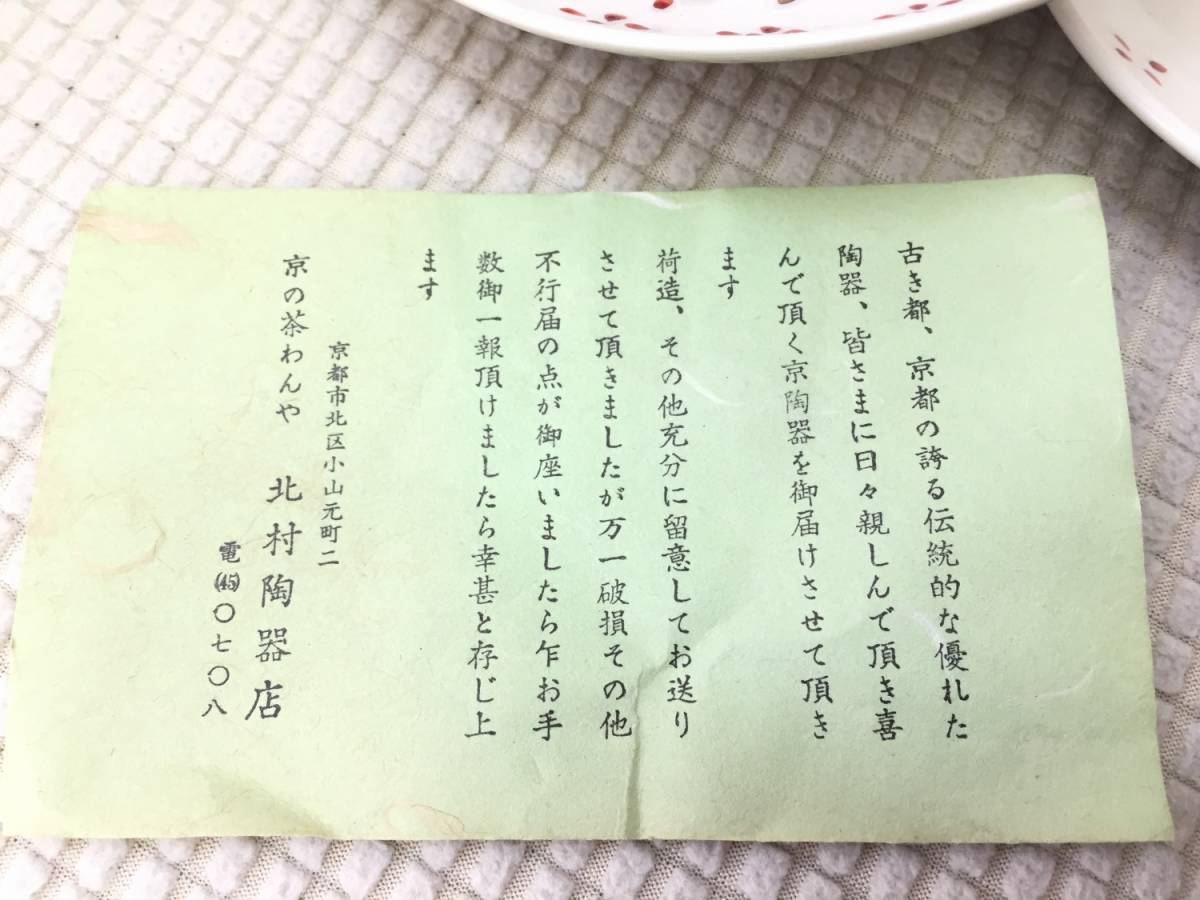 古き都、京都の誇る伝統的な優れた
陶器、皆さまに日々親しんで頂き喜
んで頂く京陶器を御届けさせて頂き
ます
荷造、その他充分に留意してお送り
させて頂きましたが万一破損その他
不行届の点が御座いましたら乍お手
数御一報頂けましたら幸甚と存じ上
ます
京都市北区小山元町二
京の茶わんや 北村陶器店
電㈺〇七〇八